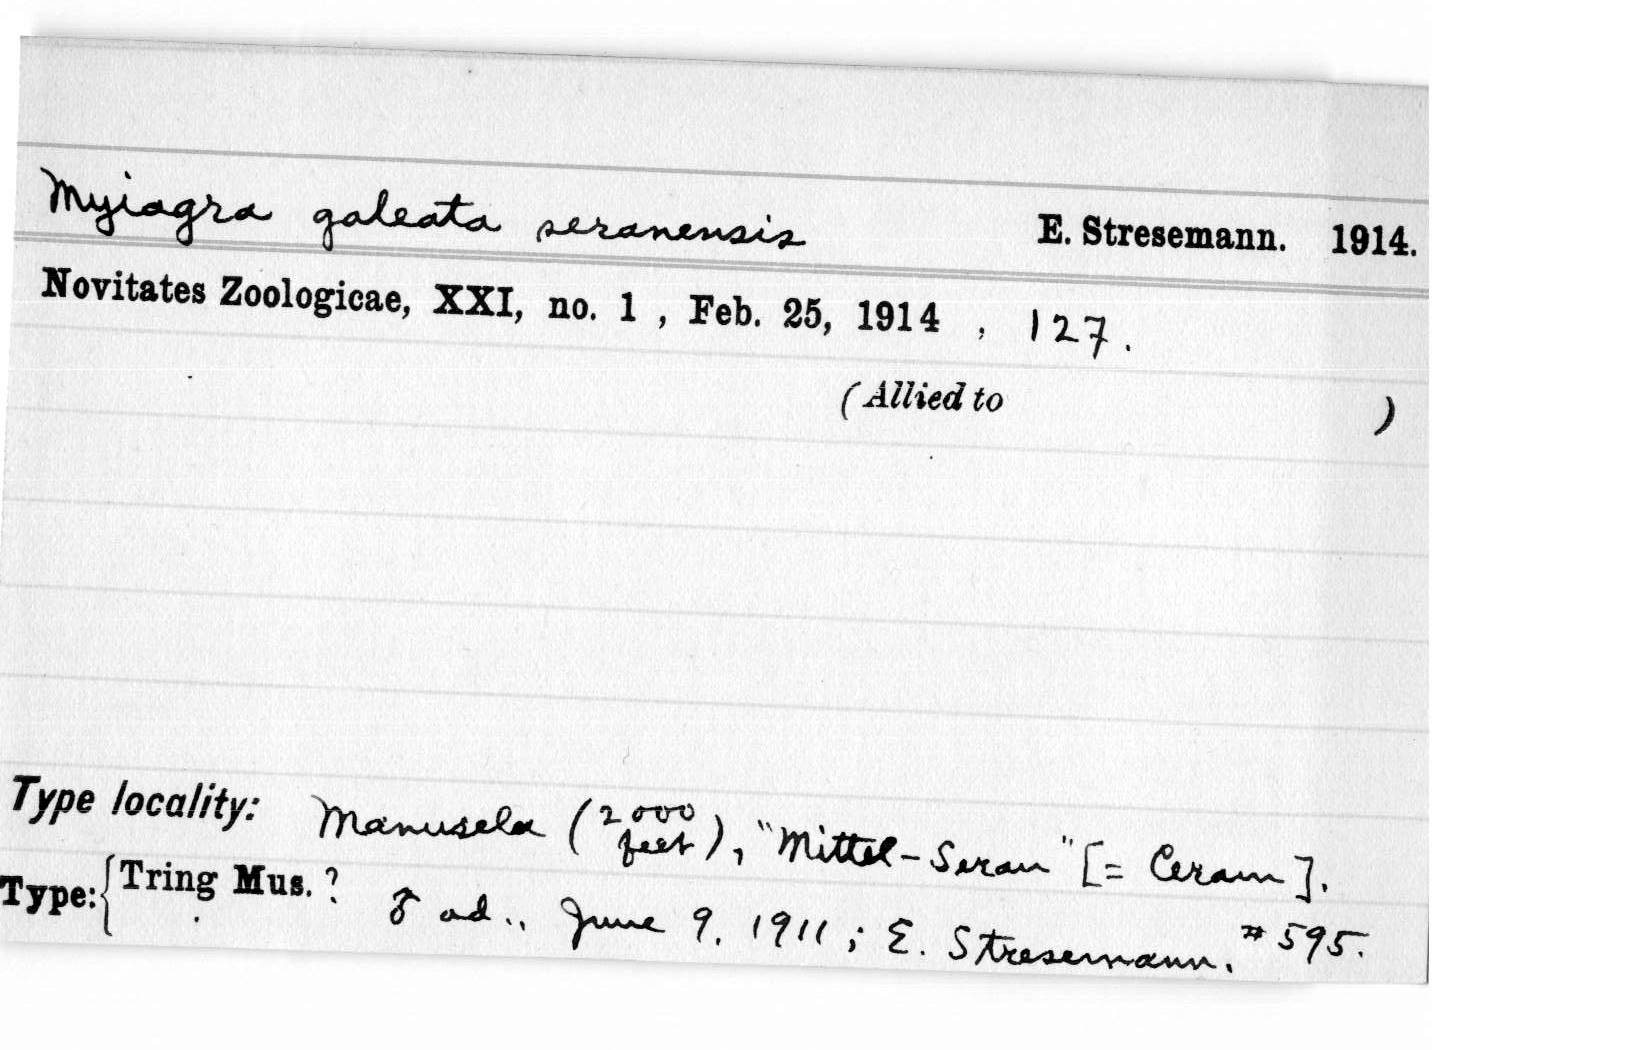 Myiagra galeata seranensis E. Stresemann. 1914.
Novitates Zoologicae, XXI, no. 1 , Feb. 25, 1914 , 127.
(Allied to )
Type locality: Manusela (2000 feet), "Mittel-Seran" [= Ceram].
Type: { Tring Mus. ? ♂ ad., June 9, 1911; E. Stresemann, #595.